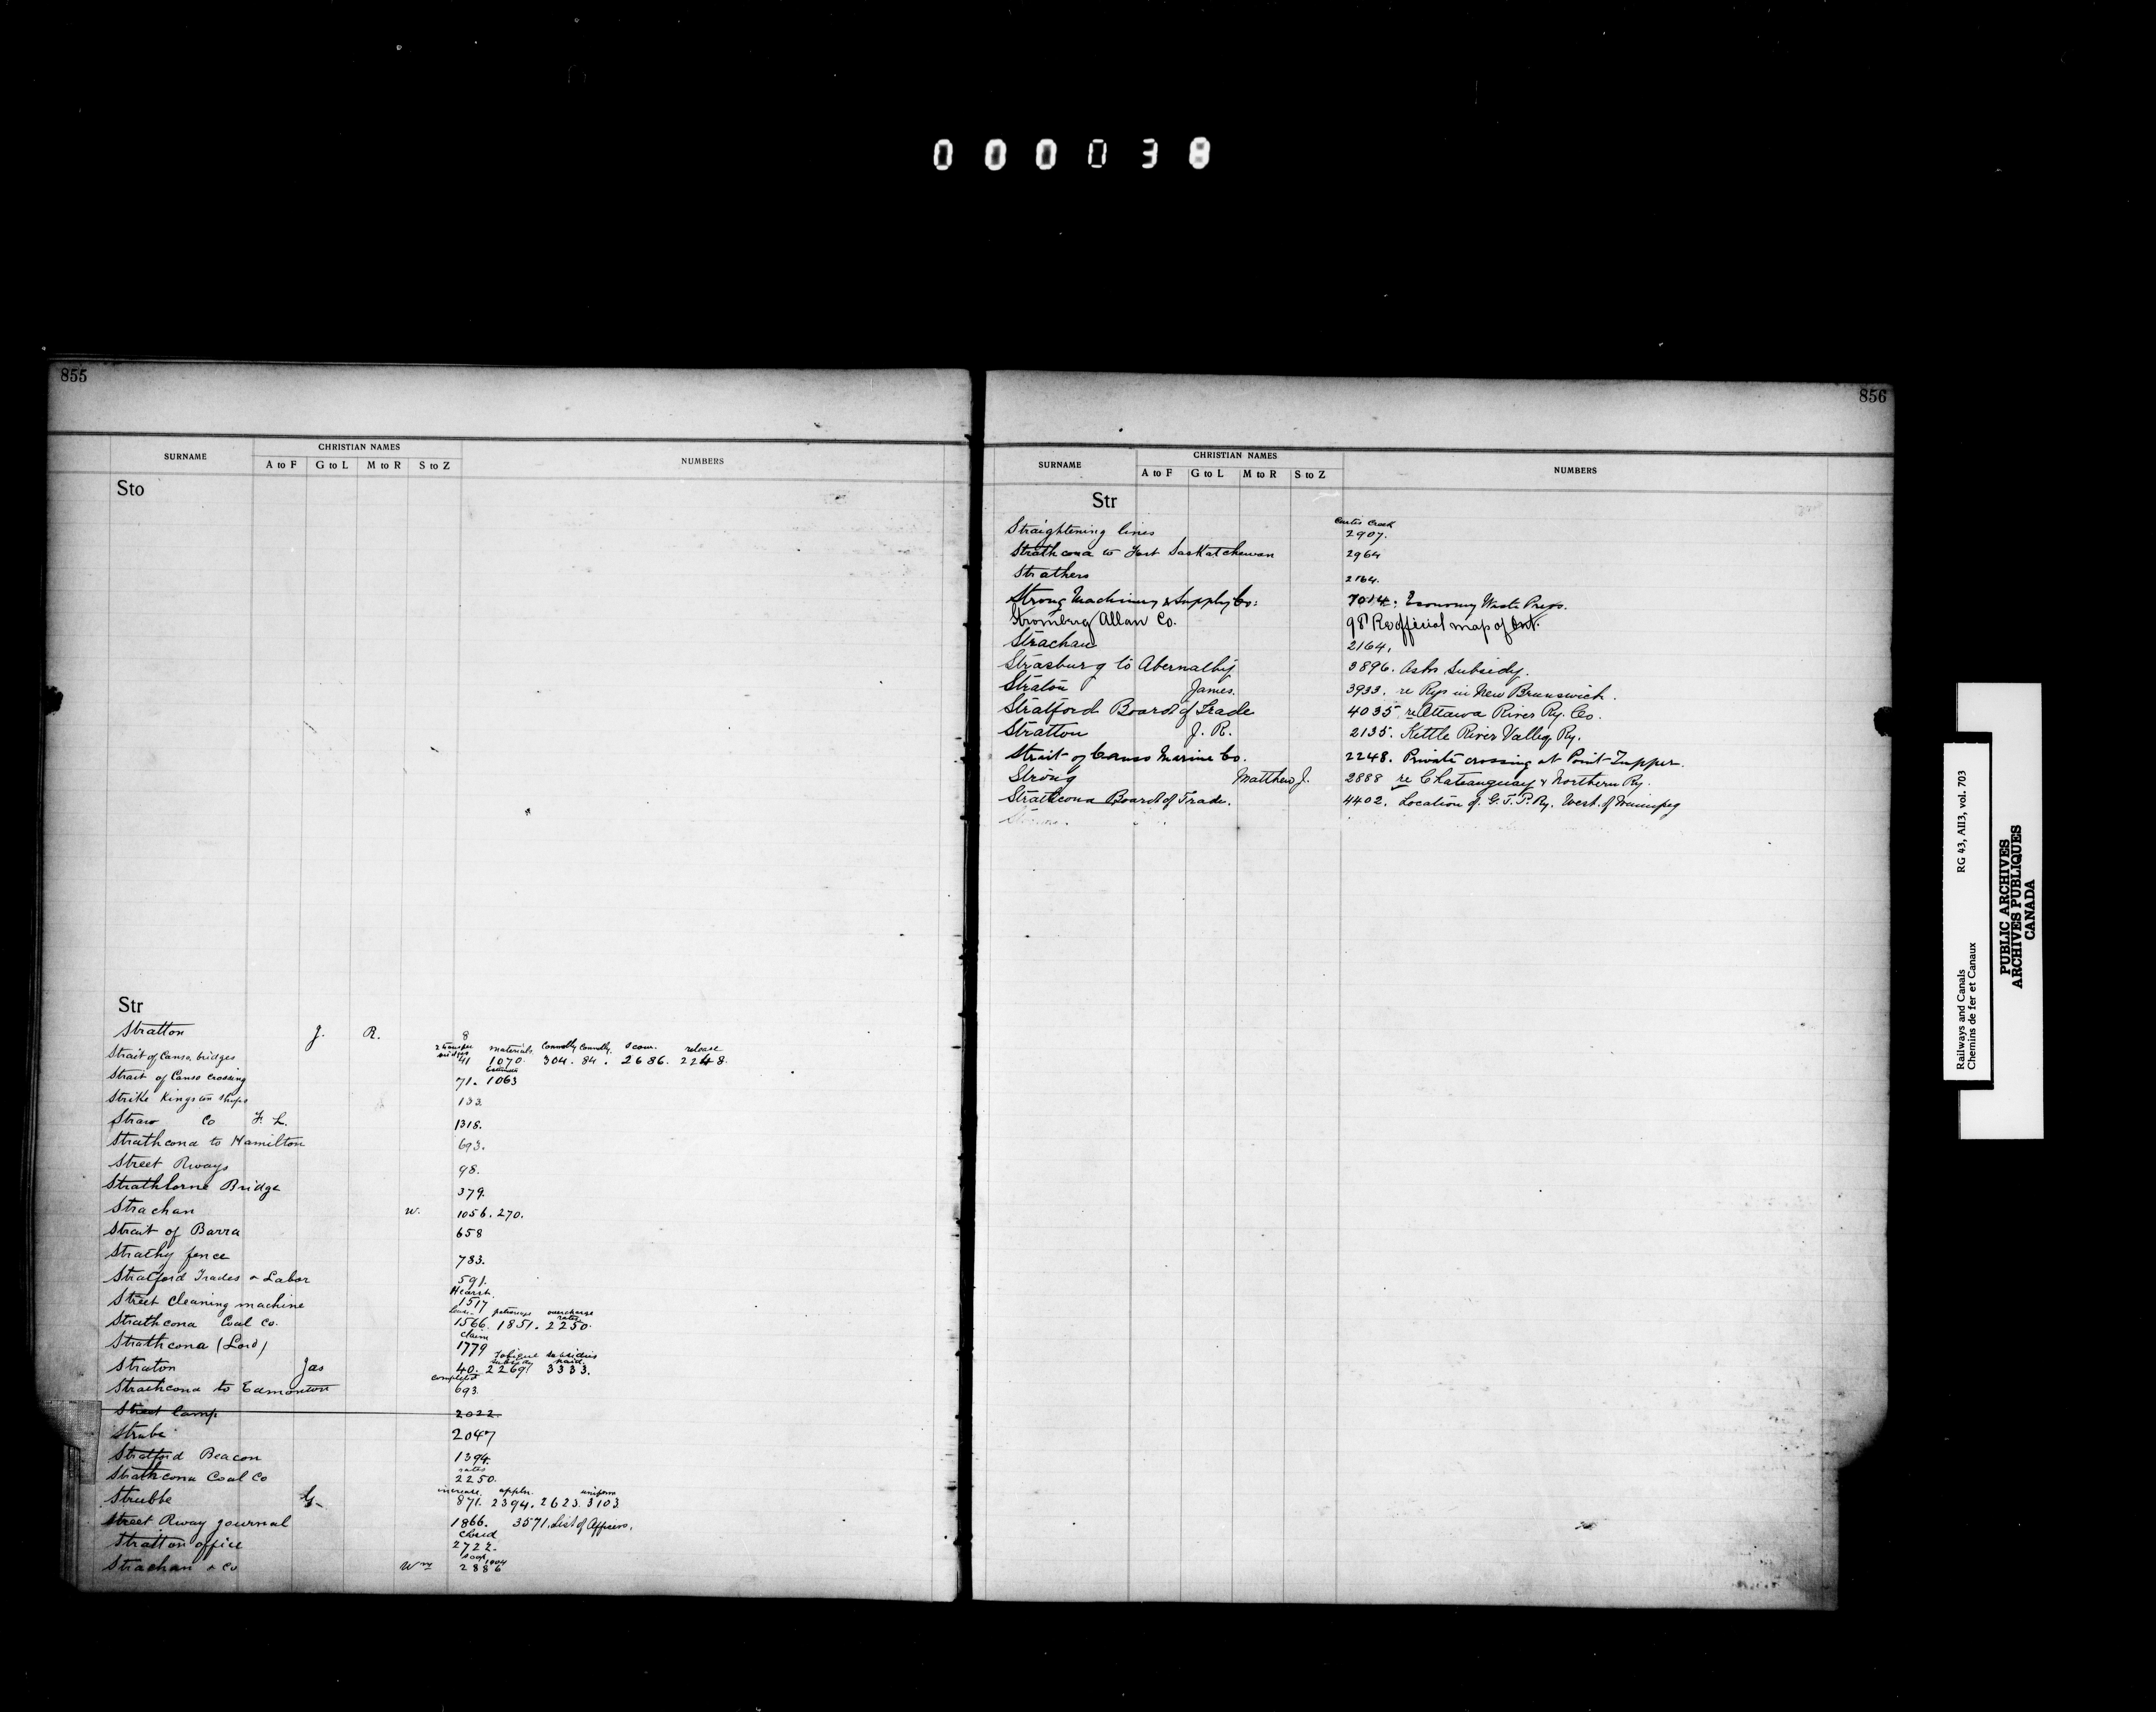 000038
855
SURNAME CHRISTIAN NAMES NUMBERS
A to F G to L M to R S to Z
Sto
Str
Stratton J. R. 8
materials Connolly Connolly release
Strait of Canso, bridges 41 1070. 304. 84. 2686. 2248.
Strait of Canso crossing 71. 1063
Strike Kingston shops 133
Straw Co F. L. 1318.
Strathcona to Hamilton 693.
Street Rways 98.
Strathlorne Bridge 379.
Strachan W. 1056. 270.
Strait of Barra 658
Strathy fence 783.
Stratford Trades & Labor 591.
Hearst.
Street Cleaning machine 1517
overcharge
rates
Strathcona Coal Co. 1566. 1851. 2250.
claim
Strathcona (Lord) 1779
Tobique subsidies
subsidy paid
Straton Jas 40. 2269 3333.
completed
Strathcona to Edmonton 693
Street Lamp 2022
Strube 2047
Stratford Beacon 1394.
rates
Strathcona Coal Co 2250.
increase. appln. uniform
Strubbe G. 871. 2394. 2623. 3103
Street Rway journal 1866. 3571. List of Officers.
closed
Stratton office 2722.
Strachan & Co Wm 2886
856
SURNAME CHRISTIAN NAMES NUMBERS
A to F G to L M to R S to Z
Str
Curtis Creek
Straightening lines 2907.
Strathcona to Fort Saskatchewan 2964
Strathers 2164.
Strong Machinery & Supply Co: 7014: Economy Waste Press.
Stromberg Allan Co. 98 Re official map of Ont.
Strachan 2164.
Strasburg to Abernathy 3896. Asks Subsidy.
Straton James. 3933. re Rys in New Brunswick.
Stratford Board of Trade 4035 re Ottawa River Ry. Co.
Stratton J. R. 2135. Kettle River Valley Ry.
Strait of Canso Marine Co. 2248. Private crossing at Point Tupper.
Strong Matthew J. 2888 re Chateauguay & Northern Ry.
Strathcona Board of Trade. 4402. Location of G.T.P. Ry. West of Winnipeg
Railways and Canals RG 43, AII3, vol. 703
Chemins de fer et Canaux
PUBLIC ARCHIVES
ARCHIVES PUBLIQUES
CANADA